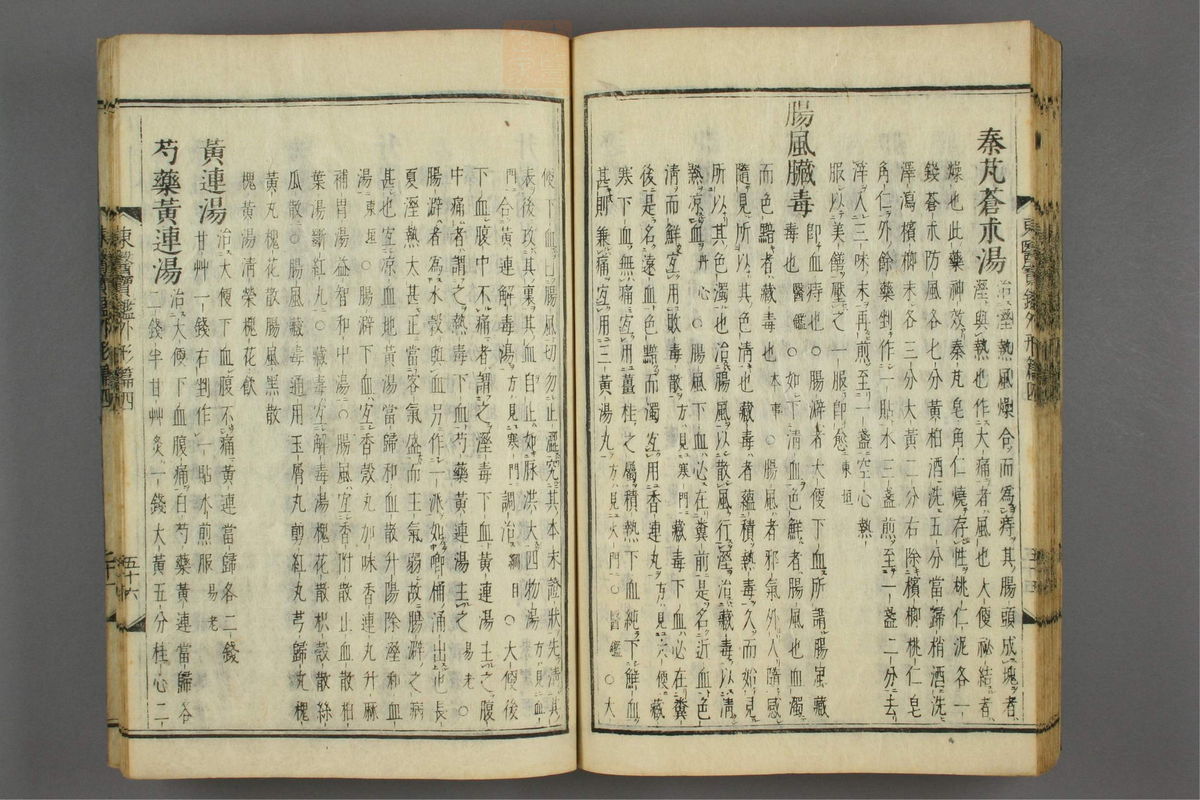 秦艽蒼朮湯治溼熱風燥合而爲痔其腸頭成塊者
溼與熱也作大痛者風也大便祕結者
燥也此藥神效秦艽皂角仁燒存性桃仁泥各一
錢蒼朮防風各七分黃柏酒洗五分當歸梢酒洗
澤瀉檳榔末各三分大黃二分右除檳榔桃仁皂
角仁外餘藥剉作一貼水三盞煎至一盞二分去
滓入三味末再煎至一盞空心熱
服以美饍壓之一服卽愈東垣
腸風臟毒卽血痔也○腸澼者大便下血所謂腸風藏
毒也醫鑑○如下清血色鮮者腸風也血濁
而色黯者藏毒也本事○腸風者邪氣外入隨感
隨見所以其色淸也藏毒者蘊積熱毒久而始見
所以其色濁也治腸風以散風行溼治藏毒以淸
熱涼血丹心○腸風下血必在糞前是名近血色
淸而鮮宜用敗毒散方見寒門藏毒下血必在糞
後是名遠血色黯而濁宜用香連丸方見大便藏
寒下血無痛宜用薑桂之屬積熱下血純下鮮血
甚則兼痛宜用三黃湯丸方見火門○醫鑑○大
東醫寶鑑外形篇四
便下血曰腸風切勿止澀究其本末證狀先淸其
表後攻其裏血自止如脉洪大四物湯方見血
門合黃連解毒湯方見寒門調治綱目○大便後
下血腹中不痛者謂之溼毒下血黃連湯主之腹
中痛者謂之熱毒下血芍藥黃連湯主之易老○
腸澼者爲水穀與血另作一派如唧桶涌出也長
夏溼熱太甚正當客氣盛而主氣弱故腸澼之病
甚也宜涼血地黃湯當歸和血散升陽除溼和血
湯東垣○腸澼下血宜香殼丸加味香連丸升麻
補胃湯益智和中湯○腸風宜香附散止血散柏
葉湯斷紅丸○藏毒宜解毒湯槐花散枳殼散絲
瓜散○腸風藏毒通用玉屑丸剪紅丸芎歸丸槐
黃丸槐花散腸風黑散
槐黃湯淸榮槐花飮
黃連湯治大便下血腹不痛黃連當歸各二錢
甘艸一錢右剉作一貼水煎服易老
芍藥黃連湯治大便下血腹痛白芍藥黃連當歸各
二錢半甘艸炙一錢大黃五分桂心二
東醫寶鑑外形篇四
五十六